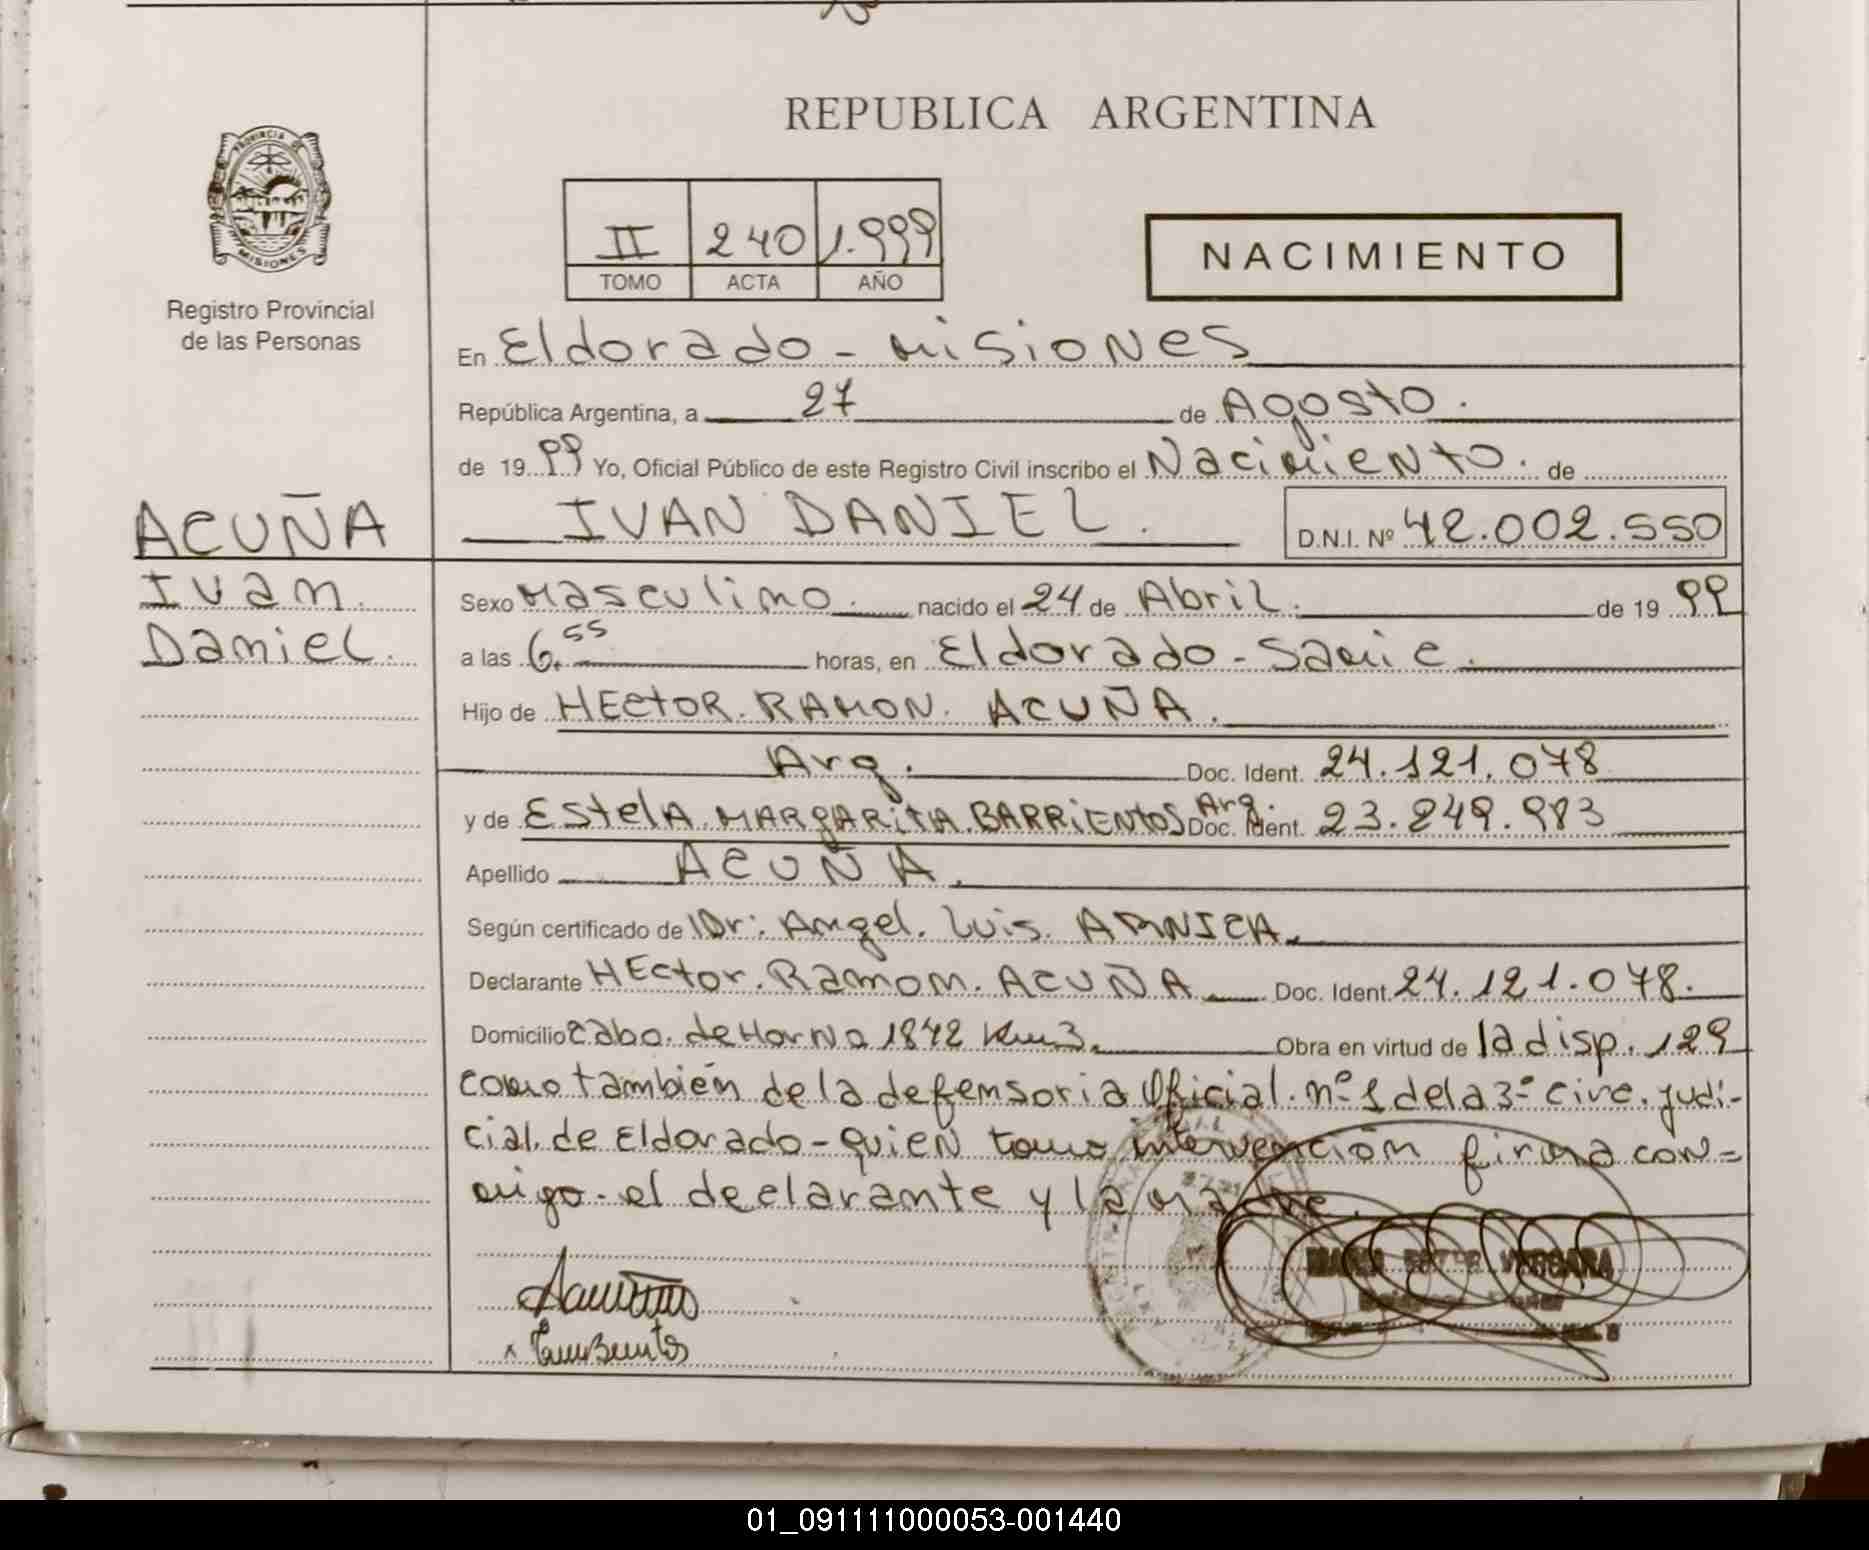 REPUBLICA ARGENTINA
PROVINCIA DE
MISIONES
Registro Provincial
de las Personas
II 240 1.999
TOMO ACTA AÑO
NACIMIENTO
En Eldorado - Misiones
República Argentina, a 27 de Agosto.
de 1999 Yo, Oficial Público de este Registro Civil inscribo el Nacimiento. de
ACUÑA
IVAN DANIEL. D.N.I. Nº 42.002.550
Ivan.
Daniel.
Sexo Masculino. nacido el 24 de Abril. de 1999
a las 6.55 horas, en Eldorado - Samic.
Hijo de HEctoR. RAMON. ACUÑA.
Arg. Doc. Ident. 24.121.078
y de EstelA. MARgARitA. BARRiENtOS Arg. Doc. Ident. 23.849.983
Apellido ACUÑA.
Según certificado de Dr. Angel. Luis.
Declarante HEctor. Ramon. ACUÑA Doc. Ident. 24.121.078.
Domicilio Cabo. de Horno 1842 Km 3. Obra en virtud de la disp. 129
como también de la defensoria Oficial. nº 1 de la 3º circ. judi-
cial. de Eldorado - quien tomo intervención firma con=
migo. el declarante y la madre.
VERGARA
01_091111000053-001440